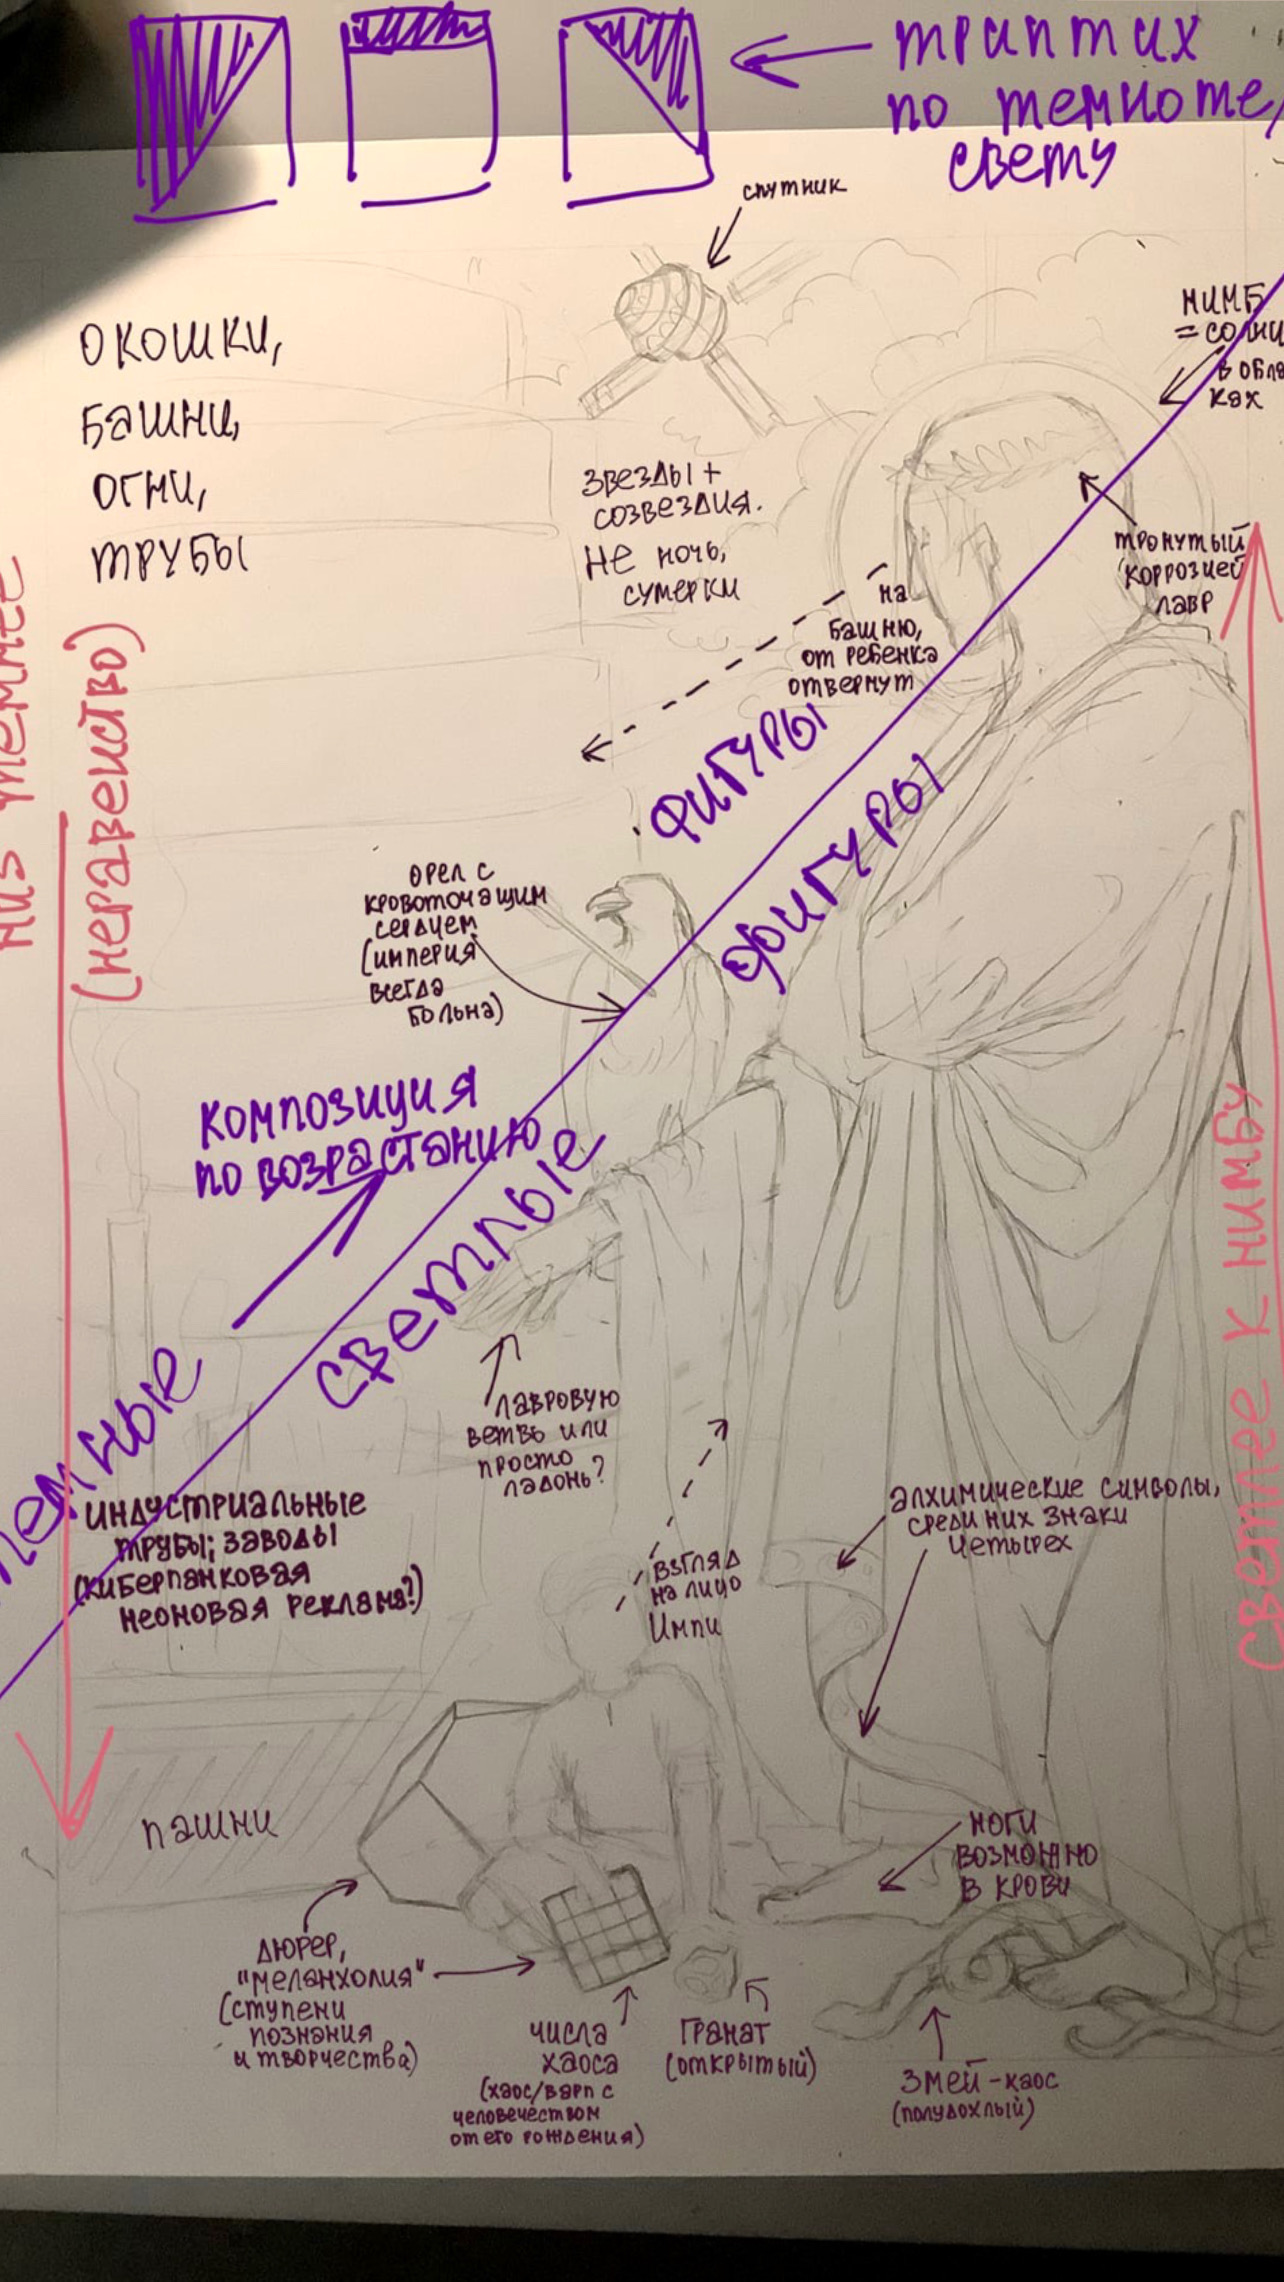 триптих
по темноте,
свету
спутник
нимб
= солнц
в обла
ках
окошки,
башни,
огни,
трубы
звезды +
созвездия.
не ночь,
сумерки
тронутый
коррозией
лавр
на
башню,
от ребенка
отвернут
низ темнее
(неравенство)
фигуры
фигуры
орел с
кровоточащим
сердцем
(империя
всегда
больна)
композиция
по возрастанию
светлые
темные
светлее к нимбу
лавровую
ветвь или
просто
ладонь?
индустриальные
трубы; заводы
(киберпанковая
неоновая реклама?)
взгляд
на лицо
Импи
алхимические символы,
среди них знаки
четырех
пашни
ноги
возможно
в крови
Дюрер,
"меланхолия"
(ступени
познания
и творчества)
числа
хаоса
(хаос/варп с
человечеством
от его рождения)
гранат
(открытый)
змей-хаос
(полудохлый)